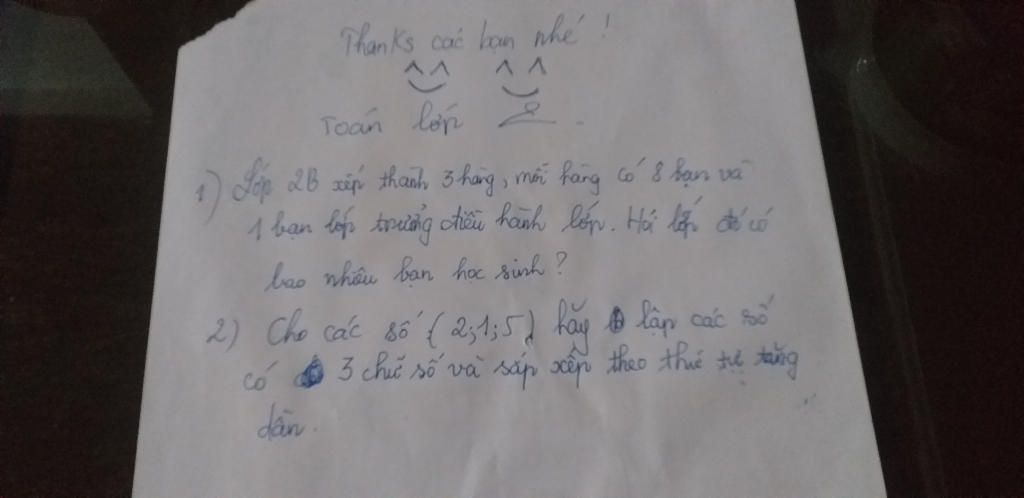 Thanks các bạn nhé !
^^ ^^
Toán lớp 2.
1) Lớp 2B xếp thành 3 hàng, mỗi hàng có 8 bạn và
1 bạn lớp trưởng điều hành lớp. Hỏi lớp đó có
bao nhiêu bạn học sinh?
2) Cho các số (2;1;5) hãy lập các số
có 3 chữ số và sắp xếp theo thứ tự tăng
dần.